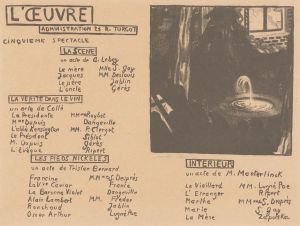 L'ŒUVRE
ADMINISTRATION 23 R. TURGOT
CINQUIEME SPECTACLE
LA SCENE
un acte de A. Lebey
La mère MMe J. Gay
Jacques MM. Desjouis
Le père Jablin
L'oncle Gérès
LA VERITE DANS LE VIN
un acte de Collé
La Présidente
Mme Dupuis Dangeville
L'abbé Kensington M. P. Clergot
Le Président
M. Dupuis Gérès
L'Evêque Ripert
LES PIEDS NICKELES
un acte de Tristan Bernard
Francine MMmes S. Desprès
France
La Baronne Violet Dangeville
Alain Lambert MM.
Ranchaud Jablin
Omer Arthur Lugné Poe
INTERIEUR
un acte de M. Maeterlinck
Le Vieillard MM. Lugné Poe
L'Etranger Ripert
Marthe MMmes S. Desprès
Marie J. Gay
La Mère Zapolska